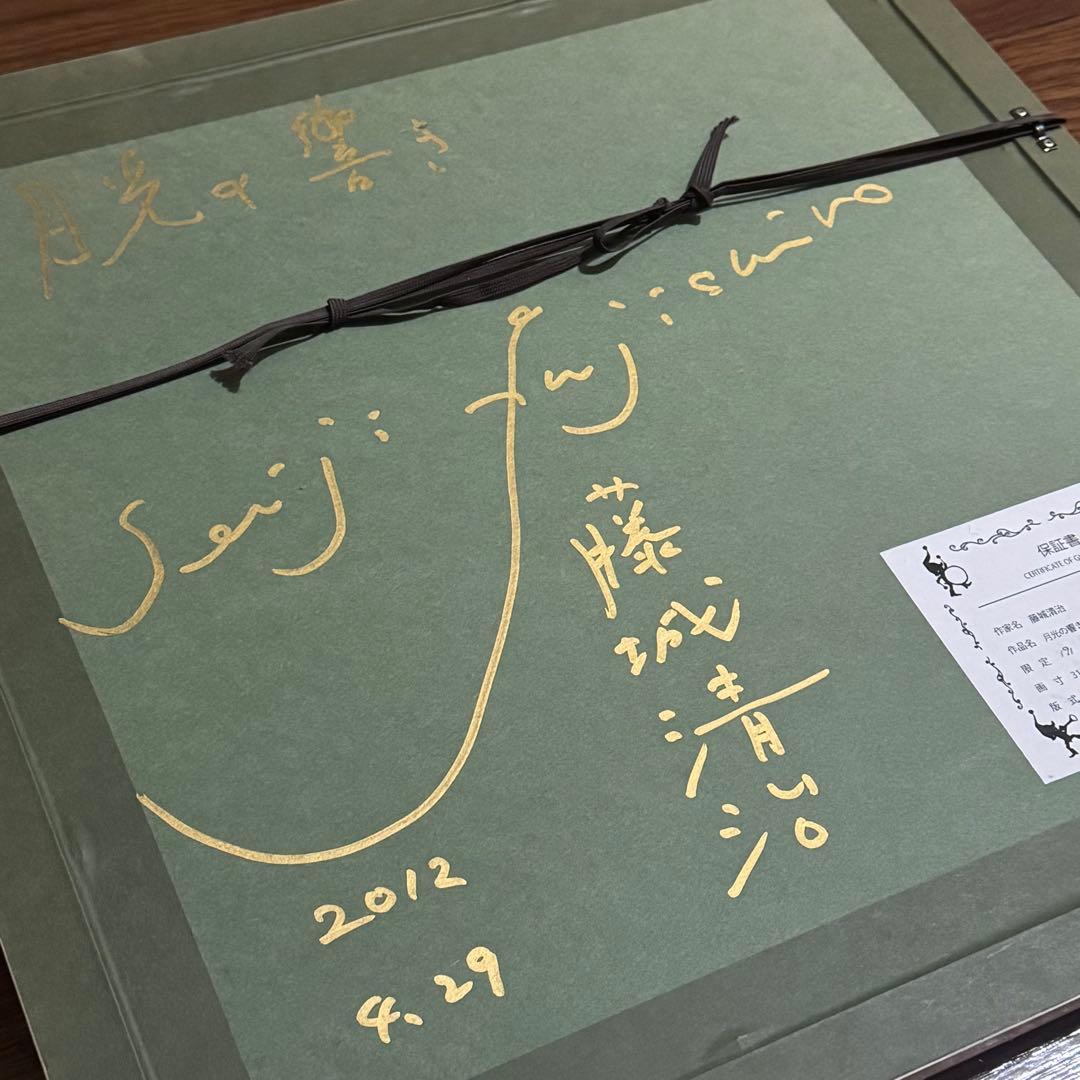 月光の響き
Seiji Fujishiro
藤城清治
2012
4.29
保証書
CERTIFICATE OF
作家名 藤城清治
作品名 月光の響き
限定
画寸 31
版式